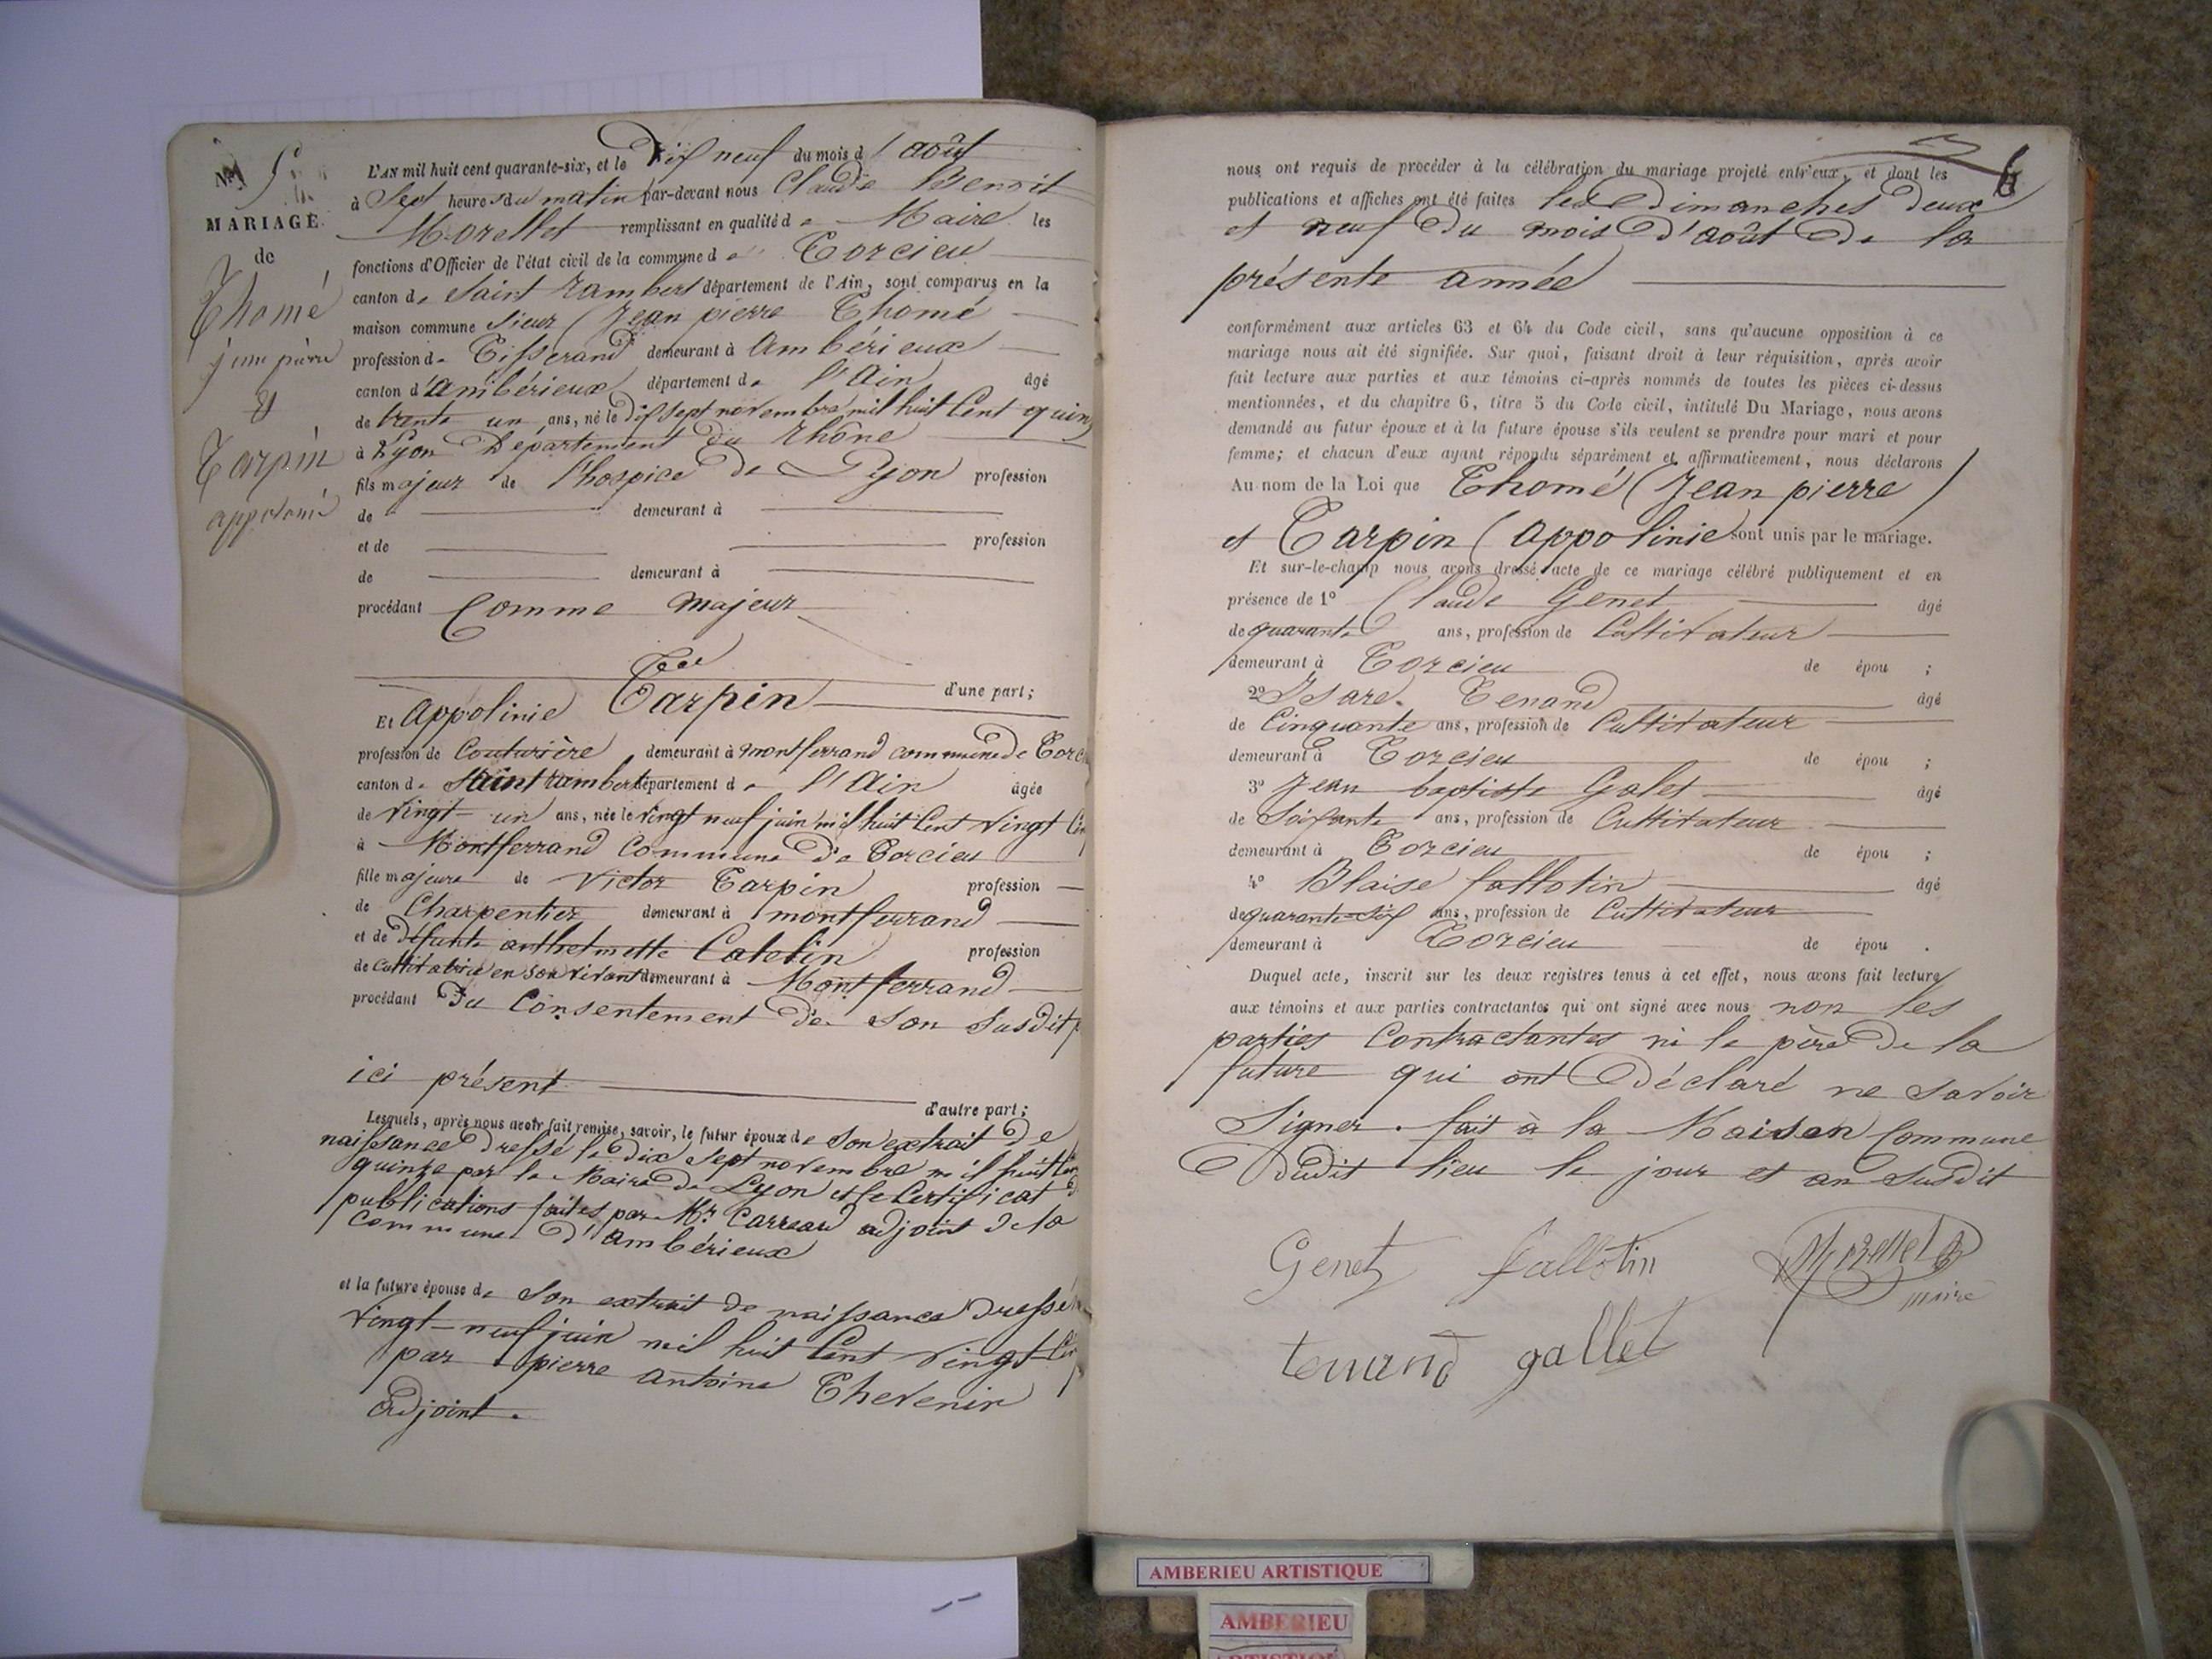 No 5
MARIAGE
de
Thomé
jean pierre
et
Tarpin
L'AN mil huit cent quarante-six, et le Dix neuf du mois d'août
à Sept heures du matin par-devant nous Claude Benoit
Morellet remplissant en qualité de Maire les
fonctions d'Officier de l'état civil de la commune de Torcieu
canton de Saint Rambert département de l'Ain, sont comparus en la
maison commune Sieur (Jean pierre Thomé
profession de Tisserand demeurant à Ambérieux
canton d'Ambérieux département de l'Ain âgé
de trente un ans, né le Dix sept novembre mil huit Cent quinz
à Lyon Département du Rhône
fils majeur de l'hospice de Lyon profession
de demeurant à
et de profession
de demeurant à
procédant Comme majeur
d'une part;
Et Appolinie Tarpin
profession de Couturière demeurant à montferrand commune de Torc
canton de Saint rambert département de l'Ain âgée
de Vingt-un ans, née le Vingt neuf juin mil huit Cent Vingt Cin
à Montferrand Commune de Torcieu
fille majeure de Victor Tarpin profession
de Charpentier demeurant à montferrand
et de Défunte anthelmette Catelin profession
de Cultivatrice en son vivant demeurant à Montferrand
procédant Du Consentement de Son Susdit p
ici présent
d'autre part;
Lesquels, après nous avoir fait remise, savoir, le futur époux de Son extrait de
naissance Dressé le dix Sept novembre mil huit Cen
quinze par le Maire de Lyon et le Certificat d
publications faites par Mr Carreau adjoint de la
Commune d'Ambérieux
et la future épouse de Son extrait de naissance Dressé
Vingt-neuf juin mil huit Cent Vingt-Cin
par pierre Antoine Thevenin
Adjoint.
nous ont requis de procéder à la célébration du mariage projeté entr'eux, et dont les
publications et affiches ont été faites les Dimanches deux
et neuf Du mois D'août De la
présente année
conformément aux articles 63 et 64 du Code civil, sans qu'aucune opposition à ce
mariage nous ait été signifiée. Sur quoi, faisant droit à leur réquisition, après avoir
fait lecture aux parties et aux témoins ci-après nommés de toutes les pièces ci-dessus
mentionnées, et du chapitre 6, titre 5 du Code civil, intitulé Du Mariage, nous avons
demandé au futur époux et à la future épouse s'ils veulent se prendre pour mari et pour
femme; et chacun d'eux ayant répondu séparément et affirmativement, nous déclarons
Au nom de la Loi que Thomé (Jean pierre)
et Tarpin (Appolinie sont unis par le mariage.
Et sur-le-champ nous avons dressé acte de ce mariage célébré publiquement et en
présence de 1° Claude Genet âgé
de quarante ans, profession de Cultivateur
demeurant à Torcieu de épou ;
2° Isare Tenand âgé
de Cinquante ans, profession de Cultivateur
demeurant à Torcieu de épou ;
3° Jean baptiste Galet âgé
de Soixante ans, profession de Cultivateur
demeurant à Torcieu de épou ;
4° Blaise fallotin âgé
de quarante-Six ans, profession de Cultivateur
demeurant à Torcieu de épou .
Duquel acte, inscrit sur les deux registres tenus à cet effet, nous avons fait lecture
aux témoins et aux parties contractantes qui ont signé avec nous non les
parties Contractantes ni le père De la
future qui ont Déclaré ne Savoir
Signer. fait à la Maison Commune
Dudit lieu le jour et an Susdit
Genet fallotin Morellet
maire
tenand gallet
AMBERIEU ARTISTIQUE
AMBERIEU
ARTISTIQUE